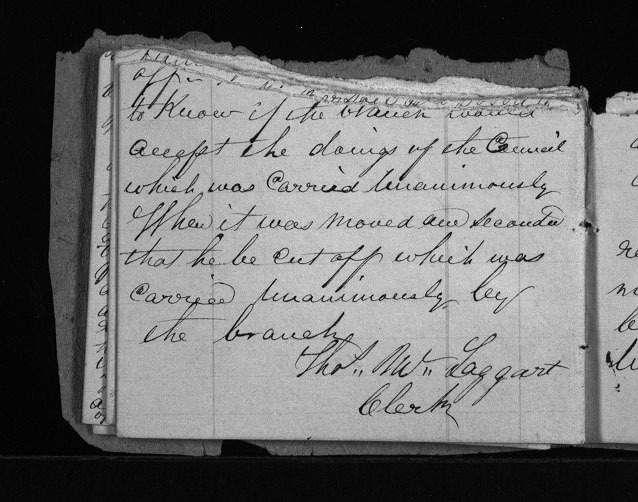 to Know if the branch would
accept the doings of the Council
which was Carried Unanimously
When it was moved and Seconded
that he be cut off which was
Carried Unanimously by
the branch
Thos. Mc. Taggart
Clerk